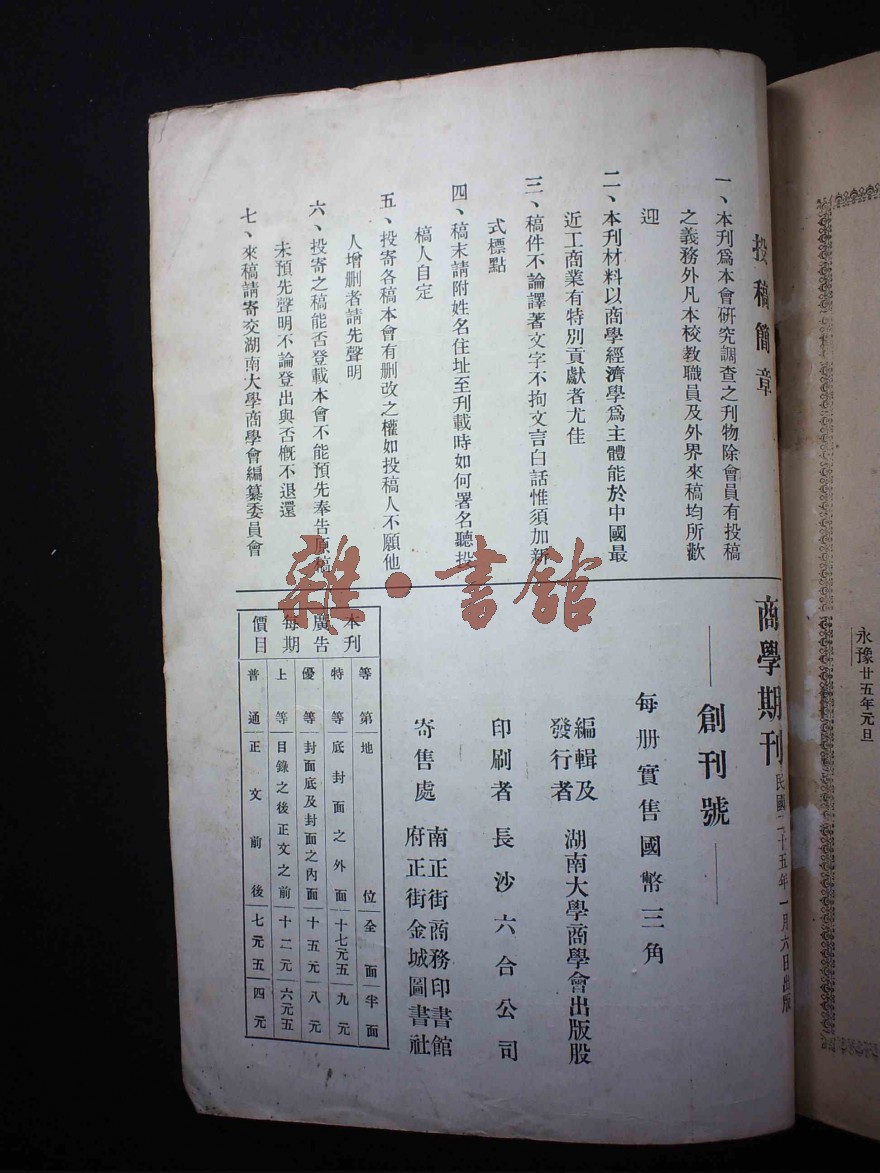 投稿簡章
一、本刊爲本會研究調查之刊物除會員有投稿
之義務外凡本校教職員及外界來稿均所歡
迎
二、本刊材料以商學經濟學爲主體能於中國最
近工商業有特別貢獻者尤佳
三、稿件不論譯著文字不拘文言白話惟須加新
式標點
四、稿末請附姓名住址至刊載時如何署名聽投
稿人自定
五、投寄各稿本會有刪改之權如投稿人不願他
人增刪者請先聲明
六、投寄之稿能否登載本會不能預先奉告原稿
未預先聲明不論登出與否概不退還
七、來稿請寄交湖南大學商學會編纂委員會
商學期刊 民國二十五年一月六日出版
創刊號
每册實售國幣三角
編輯及
發行者 湖南大學商學會出版股
印刷者 長沙六合公司
寄售處 南正街商務印書館
府正街金城圖書社
本刊
廣告
每期
價目
等第 地位 全面 半面
特等 底封面之外面 十七元五 九元
優等 封面底及封面之內面 十五元 八元
上等 目錄之後正文之前 十二元 六元五
普通 正文前後 七元五 四元
永豫廿五年元旦
雜·書館